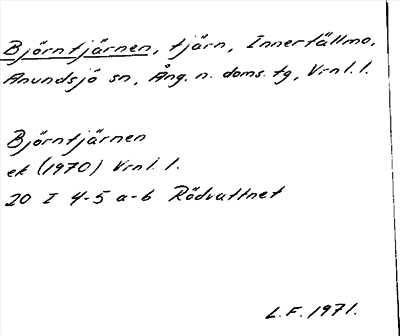 Björntjärnen, tjärn, Innertällmo,
Anundsjö sn, Ång. n. doms. tg, Vrnl. l.
Björntjärnen
ek (1970) Vrnl. l.
20 I 4-5 a-b Rödvattnet
L.F. 1971.